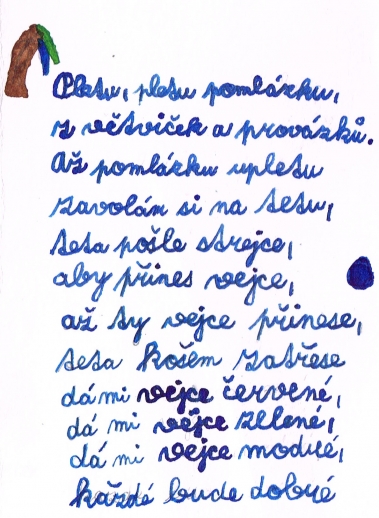 Pletu, pletu pomlázku,
z větviček a provázků.
Až pomlázku upletu
zavolám si na tetu,
teta pošle strejce,
aby přines vejce,
až ty vejce přinese,
teta košem zatřese
dá mi vejce červené,
dá mi vejce zelené,
dá mi vejce modré,
každé bude dobré